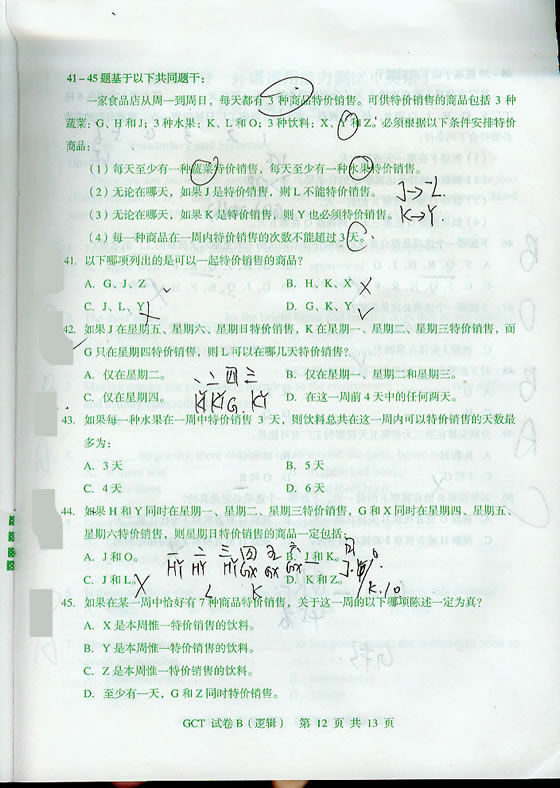 41-45题基于以下共同题干:
一家食品店从周一到周日，每天都有 3 种商品特价销售。可供特价销售的商品包括 3 种
蔬菜: G、H 和 J; 3 种水果: K、L 和 O; 3 种饮料: X、Y 和 Z。必须根据以下条件安排特价
商品:
(1) 每天至少有一种蔬菜特价销售，每天至少有一种水果特价销售。
(2) 无论在哪天，如果 J 是特价销售，则 L 不能特价销售。 J→-L
(3) 无论在哪天，如果 K 是特价销售，则 Y 也必须特价销售。 K→Y
(4) 每一种商品在一周内特价销售的次数不能超过 3 天。
41. 以下哪项列出的是可以一起特价销售的商品?
A. G、J、Z B. H、K、X X
C. J、L、Y X D. G、K、Y
42. 如果 J 在星期五、星期六、星期日特价销售，K 在星期一、星期二、星期三特价销售，而
G 只在星期四特价销售，则 L 可以在哪几天特价销售?
A. 仅在星期二。 B. 仅在星期一、星期二和星期三。
C. 仅在星期四。 D. 在这一周前 4 天中的任何两天。
一 二 四 三
KY KY G KY
43. 如果每一种水果在一周中特价销售 3 天，则饮料总共在这一周内可以特价销售的天数最
多为:
A. 3 天 B. 5 天
C. 4 天 D. 6 天
44. 如果 H 和 Y 同时在星期一、星期二、星期三特价销售，G 和 X 同时在星期四、星期五、
星期六特价销售，则星期日特价销售的商品一定包括:
A. J 和 O。 B. J 和 K。
一 二 三 四 五 六 日
HY HY HY GX GX GX
C. J 和 L。 X D. K 和 Z。
L K
45. 如果在某一周中恰好有 7 种商品特价销售，关于这一周的以下哪项陈述一定为真?
A. X 是本周惟一特价销售的饮料。
B. Y 是本周惟一特价销售的饮料。
C. Z 是本周惟一特价销售的饮料。
D. 至少有一天，G 和 Z 同时特价销售。
GCT 试卷 B (逻辑) 第 12 页 共 13 页